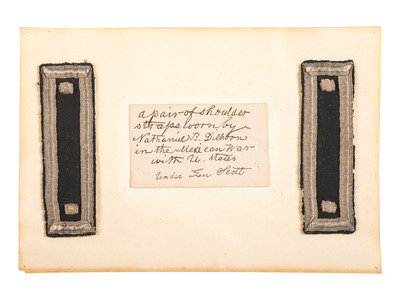 a pair of shoulder
straps worn by
Nathaniel B. Dilhorn
in the Mexican War
with U. States
Under Gen Scott